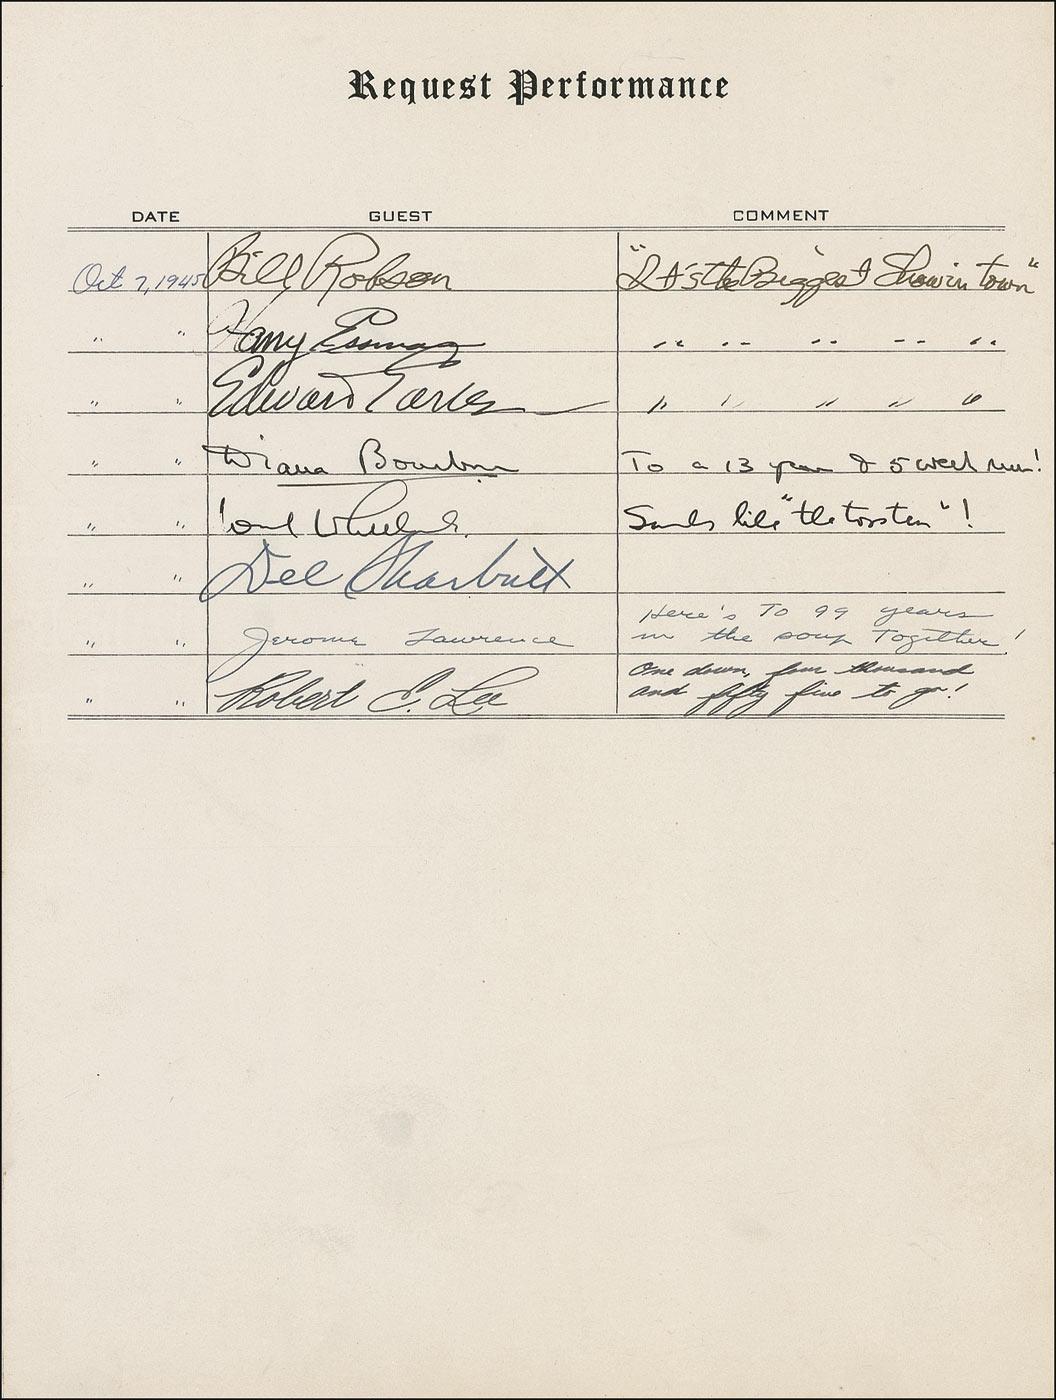 Request Performance
DATE GUEST COMMENT
Oct 7, 1945 Bill Robson "It's the Biggest Show in town"
" " Harry " " " " "
" " Edward " " " " "
" " Diana Bourbon To a 13 year & 5 week run!
" " like "the " !
" " Del Sharbutt
Here's To 99 years
" " Jerome Lawrence in the soup Together!
One down, four thousand
" " Robert E. Lee and fifty five to go!